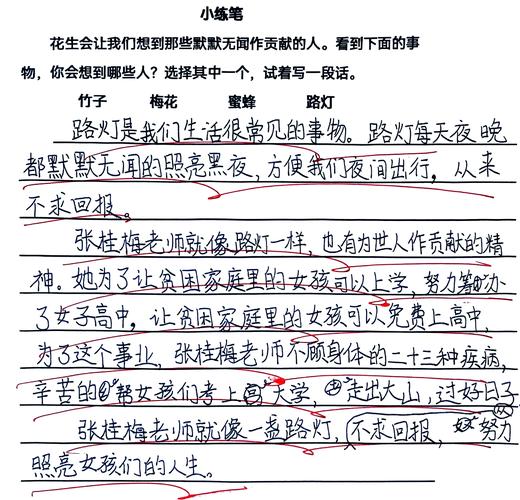 小练笔
花生会让我们想到那些默默无闻作贡献的人。看到下面的事
物，你会想到哪些人？选择其中一个，试着写一段话。
竹子 梅花 蜜蜂 路灯
路灯是我们生活很常见的事物。路灯每天夜晚
都默默无闻的照亮黑夜，方便我们夜间出行，从来
不求回报。
张桂梅老师就像路灯一样，也有为世人作贡献的精
神。她为了让贫困家庭里的女孩可以上学，努力筹办
了女子高中，让贫困家庭里的女孩可以免费上高中，
为了这个事业，张桂梅老师不顾身体的二十三种疾病，
辛苦的帮女孩们考上大学，走出大山，过好日子
张桂梅老师就像一盏路灯，不求回报，努力
照亮女孩们的人生。